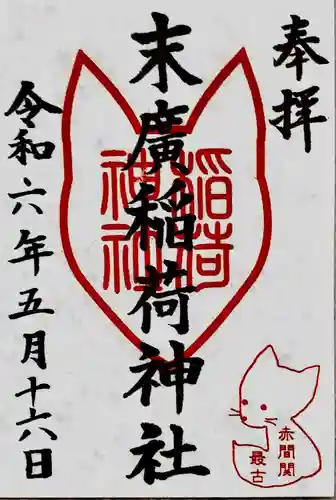 奉拝
末廣稲荷神社
稲荷
神社
令和六年五月十六日
赤間関
最古